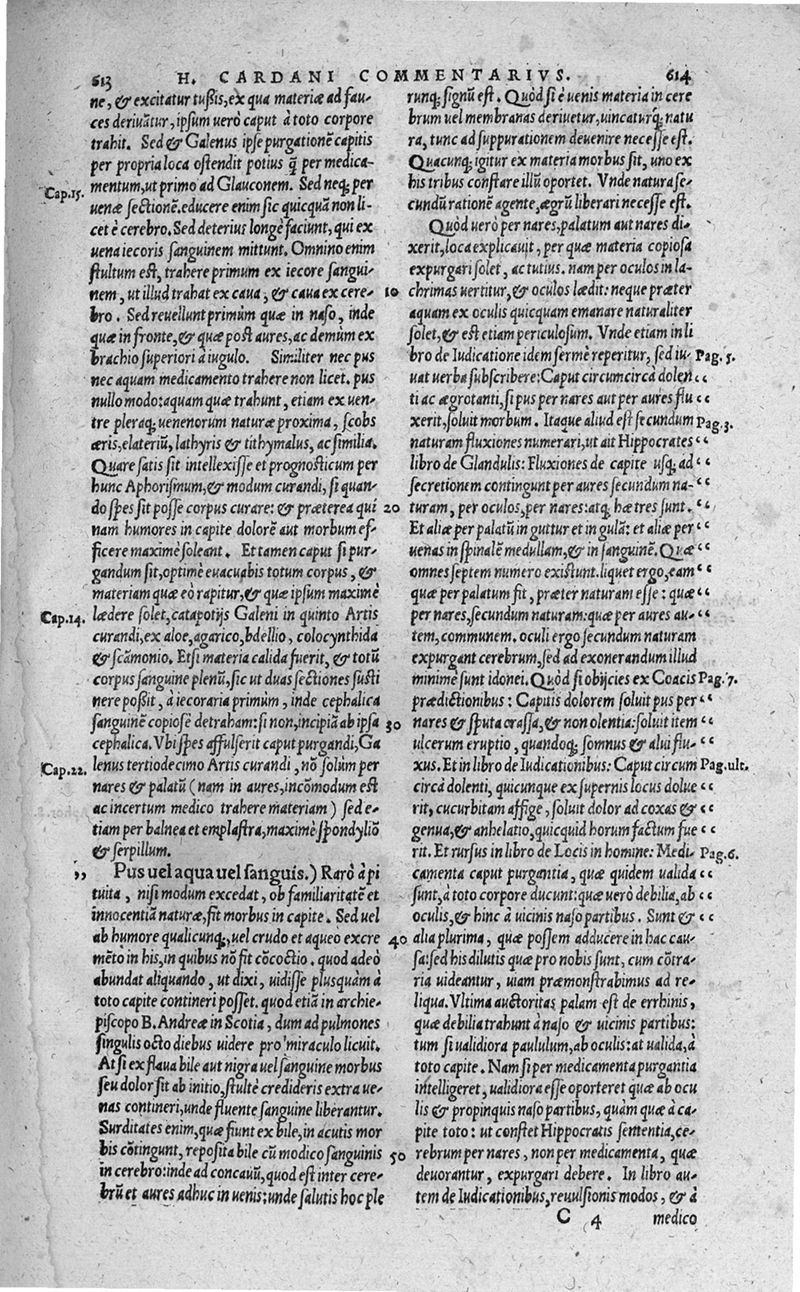 613 H. CARDANI COMMENTARIVS. 614
ne, & excitatur tußis, ex qua materiæ ad fau-
ces deriuãtur, ipsum uerò caput à toto corpore
trahit. Sed & Galenus ipse purgationẽ capitis
per propria loca ostendit potius q̃ per medica-
Cap.15. mentum, ut primo ad Glauconem. Sed neq; per
uenæ sectionẽ. educere enim sic quicquã non li-
cet è cerebro. Sed deterius longè faciunt, qui ex
uena iecoris sanguinem mittunt. Omnino enim
stultum est, trahere primum ex iecore sangui-
nem, ut illud trahat ex caua, & caua ex cere- 10
bro. Sed reuellunt primùm quæ in naso, inde
quæ in fronte, & quæ post aures, ac demùm ex
brachio superiori à iugulo. Similiter nec pus
nec aquam medicamento trahere non licet. pus
nullo modo: aquam quæ trahunt, etiam ex uen-
tre pleraq; uenenorum naturæ proxima, scobs
æris, elateriũ, lathyris & tithymalus, ac similia.
Quare satis sit intellexisse et prognosticum per
hunc Aphorismum, & modum curandi, si quan-
do spes sit posse corpus curare: & præterea qui 20
nam humores in capite dolorẽ aut morbum ef-
ficere maximè soleant. Et tamen caput si pur-
gandum sit, optimè euacuabis totum corpus, &
materiam quæ eò rapitur, & quæ ipsum maximè
Cap.14. lædere solet, catapotijs Galeni in quinto Artis
curandi, ex aloe, agarico, bdellio, colocynthida
& scãmonio. Etsi materia calida fuerit, & totũ
corpus sanguine plenũ, sic ut duas sectiones susti
nere poßit, à iecoraria primum, inde cephalica
sanguinẽ copiosè detraham: si non, incipiã ab ipsa 30
cephalica. Vbi spes affulserit caput purgandi, Ga
Cap.22. lenus tertiodecimo Artis curandi, nõ solùm per
nares & palatũ (nam in aures, incõmodum est
ac incertum medico trahere materiam) sed e-
tiam per balnea et emplastra, maximè spondyliõ
& serpillum.
„ Pus uel aqua uel sanguis.) Rarò à pi
tuita, nisi modum excedat, ob familiaritatẽ et
innocentiã naturæ, fit morbus in capite. Sed uel
ab humore qualicunq;, uel crudo et aqueo excre 40
mẽto in his, in quibus nõ fit cõcoctio. quod adeò
abundat aliquando, ut dixi, uidisse plusquàm à
toto capite contineri posset. quod etiã in archie-
piscopo B. Andreæ in Scotia, dum ad pulmones
singulis octo diebus uidere pro miraculo licuit.
At si ex flaua bile aut nigra uel sanguine morbus
seu dolor sit ab initio, stultè credideris extra ue-
nas contineri, unde fluente sanguine liberantur.
Surditates enim, quæ fiunt ex bile, in acutis mor
bis cõtingunt, reposita bile cũ modico sanguinis 50
in cerebro: inde ad concauũ, quod est inter cere-
brũ et aures adhuc in uenis: unde salutis hoc ple
runq; signũ est. Quòd si è uenis materia in cere
brum uel membranas deriuetur, uincaturq; natu
ra, tunc ad suppurationem deuenire necesse est.
Quacunq; igitur ex materia morbus sit, uno ex
his tribus constare illũ oportet. Vnde natura se-
cundũ rationẽ agente, ægrũ liberari necesse est.
Quòd uerò per nares, palatum aut nares di-
xerit, loca explicauit, per quæ materia copiosa
expurgari solet, ac tutius. nam per oculos in la-
chrimas uertitur, & oculos lædit: neque præter
aquam ex oculis quicquam emanare naturaliter
solet, & est etiam periculosum. Vnde etiam in li
bro de Iudicatione idem fermè reperitur, sed iu- Pag.5.
uat uerba subscribere: Caput circumcircà dolen “
ti ac ægrotanti, si pus per nares aut per aures flu “
xerit, soluit morbum. Itaque aliud est secundum Pag.3.
naturam fluxiones numerari, ut ait Hippocrates “
libro de Glandulis: Fluxiones de capite usq; ad “
secretionem contingunt per aures secundum na- “
turam, per oculos, per nares: atq; hæ tres sunt. “
Et aliæ per palatũ in guttur et in gulã: et aliæ per “
uenas in spinalẽ medullam, & in sanguinẽ. Quæ “
omnes septem numero existunt. liquet ergo, eam “
quæ per palatum fit, præter naturam esse: quæ
per nares, secundum naturam: quæ per aures au-
tem, communem. oculi ergo secundum naturam
expurgant cerebrum, sed ad exonerandum illud
minimè sunt idonei. Quòd si obijcies ex Coacis Pag.7.
prædictionibus: Capitis dolorem soluit pus per “
nares & sputa crassa, & non olentia: soluit item “
ulcerum eruptio, quandoq; somnus & alui flu- “
xus. Et in libro de Iudicationibus: Caput circum Pag.ult.
circà dolenti, quicunque ex supernis locus dolue “
rit, cucurbitam affige, soluit dolor ad coxas & “
genua, & anhelatio, quicquid horum factum fue “
rit. Et rursus in libro de Locis in homine: Medi- Pag.6.
camenta caput purgantia, quæ quidem ualida “
sunt, à toto corpore ducunt: quæ uerò debilia, ab “
oculis, & hinc à uicinis naso partibus. Sunt & “
alia plurima, quæ possem adducere in hac cau-
sa: sed his dilutis quæ pro nobis sunt, cum cõtra-
ria uideantur, uiam præmonstrabimus ad re-
liqua. Vltima auctoritas palam est de errhinis,
quæ debilia trahunt à naso & uicinis partibus:
tum si ualidiora paululum, ab oculis: at ualida, à
toto capite. Nam si per medicamenta purgantia
intelligeret, ualidiora esse oporteret quæ ab ocu
lis & propinquis naso partibus, quàm quæ à ca-
pite toto: ut constet Hippocratis sententia, ce-
rebrum per nares, non per medicamenta, quæ
deuorantur, expurgari debere. In libro au-
tem de Iudicationibus, reuulsionis modos, & à
C 4 medico